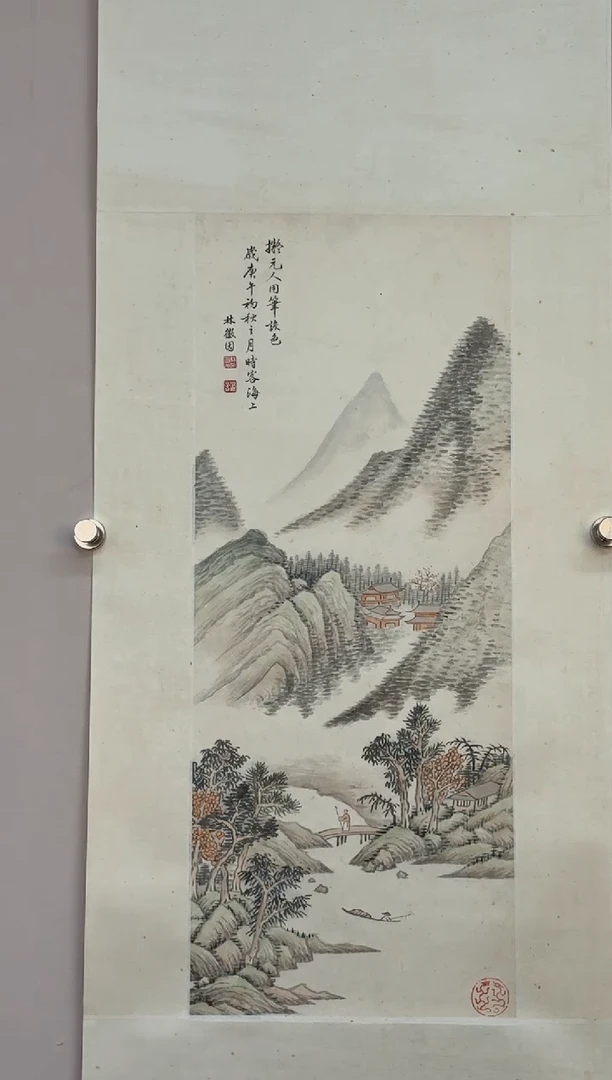 擬元人用筆設色
歲庚午初秋之月時客海上
林徽因